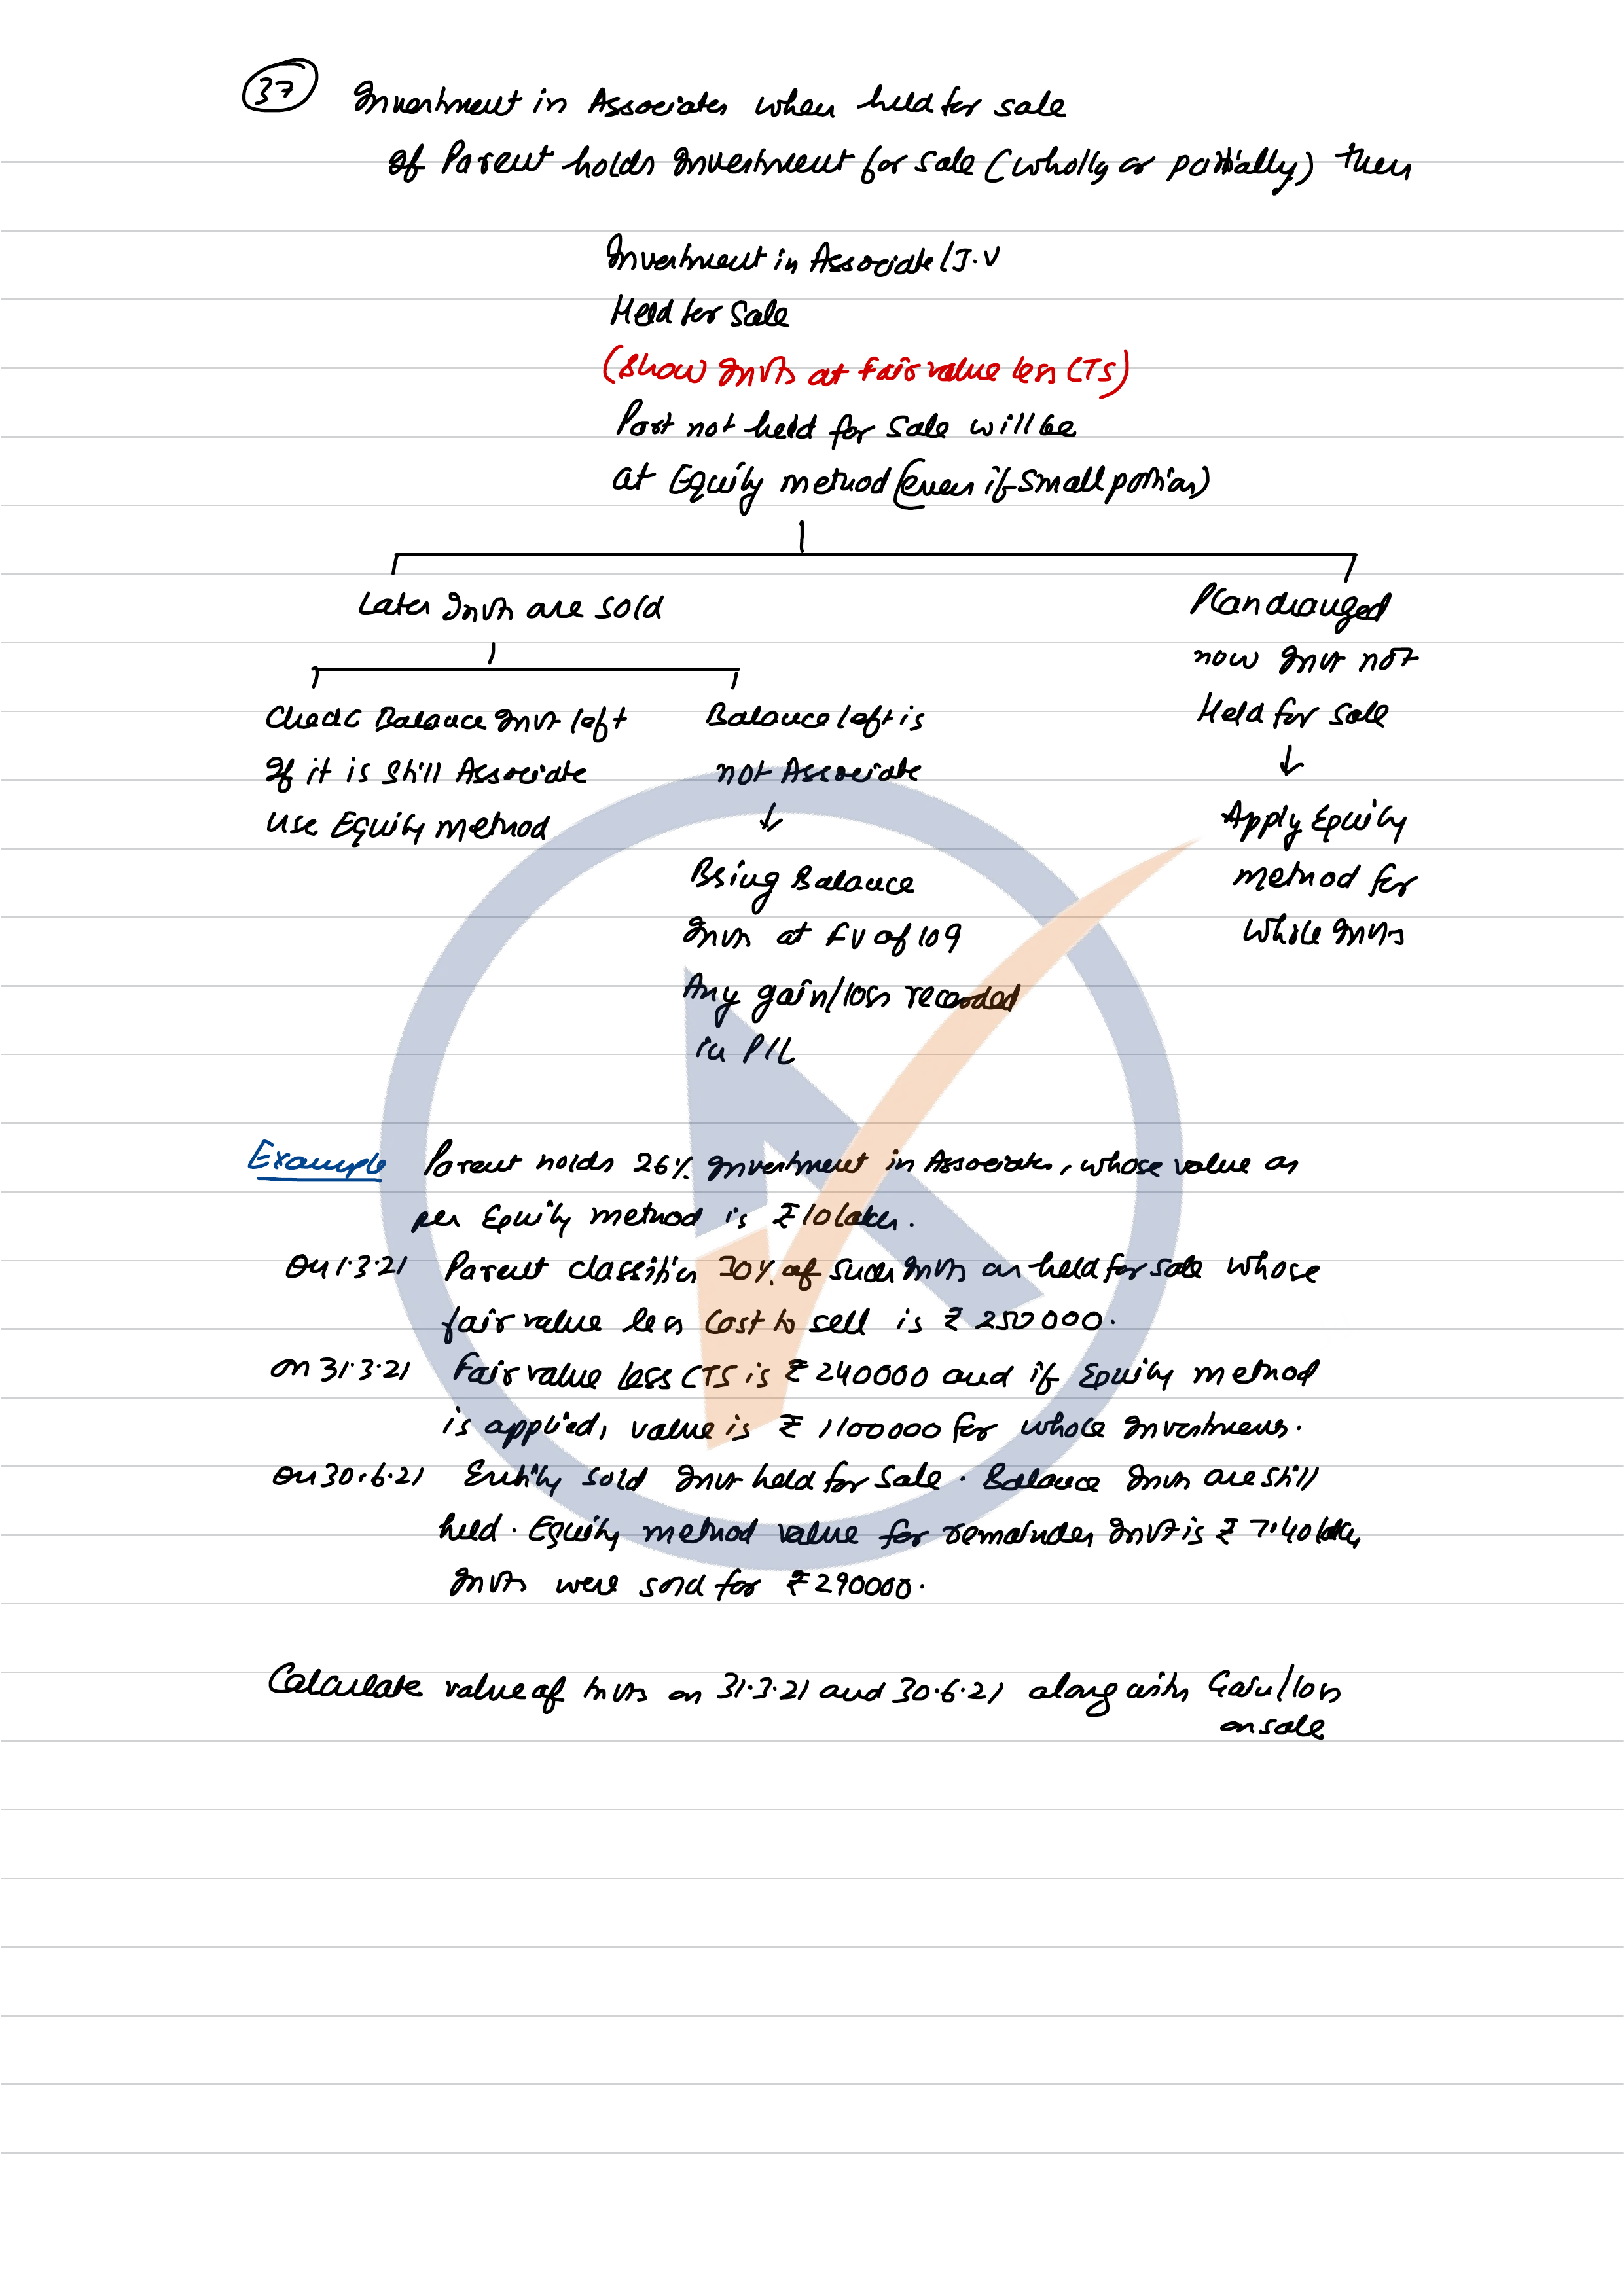 37 Investment in Associates when held for sale
If Parent holds Investment for sale (wholly or partially) then
Investment in Associate/J.V
Held for Sale
(Show Invts at Fair value less CTS)
Part not held for sale will be
at Equity method (even if small portion)
Later Invts are sold
Plan changed
now Invt not
Held for sale
↓
Apply Equity
method for
whole Invts
Check Balance Invt left
If it is Still Associate
use Equity method
Balance left is
not Associate
↓
Bring Balance
Invts at FV of 109
Any gain/loss recorded
in P/L
Example Parent holds 26% Investment in Associates, whose value as
per Equity method is ₹10 lakh.
On 1.3.21 Parent classifies 30% of such Invts as held for sale whose
fair value less Cost to sell is ₹ 250000.
on 31.3.21 Fair value less CTS is ₹ 240000 and if Equity method
is applied, value is ₹ 1100000 for whole Investments.
On 30.6.21 Entity sold Invt held for Sale. Balance Invts are still
held. Equity method value for remainder Invt is ₹ 7.40 lakh,
Invts were sold for ₹290000.
Calculate value of Invts on 31.3.21 and 30.6.21 along with Gain/loss
on sale